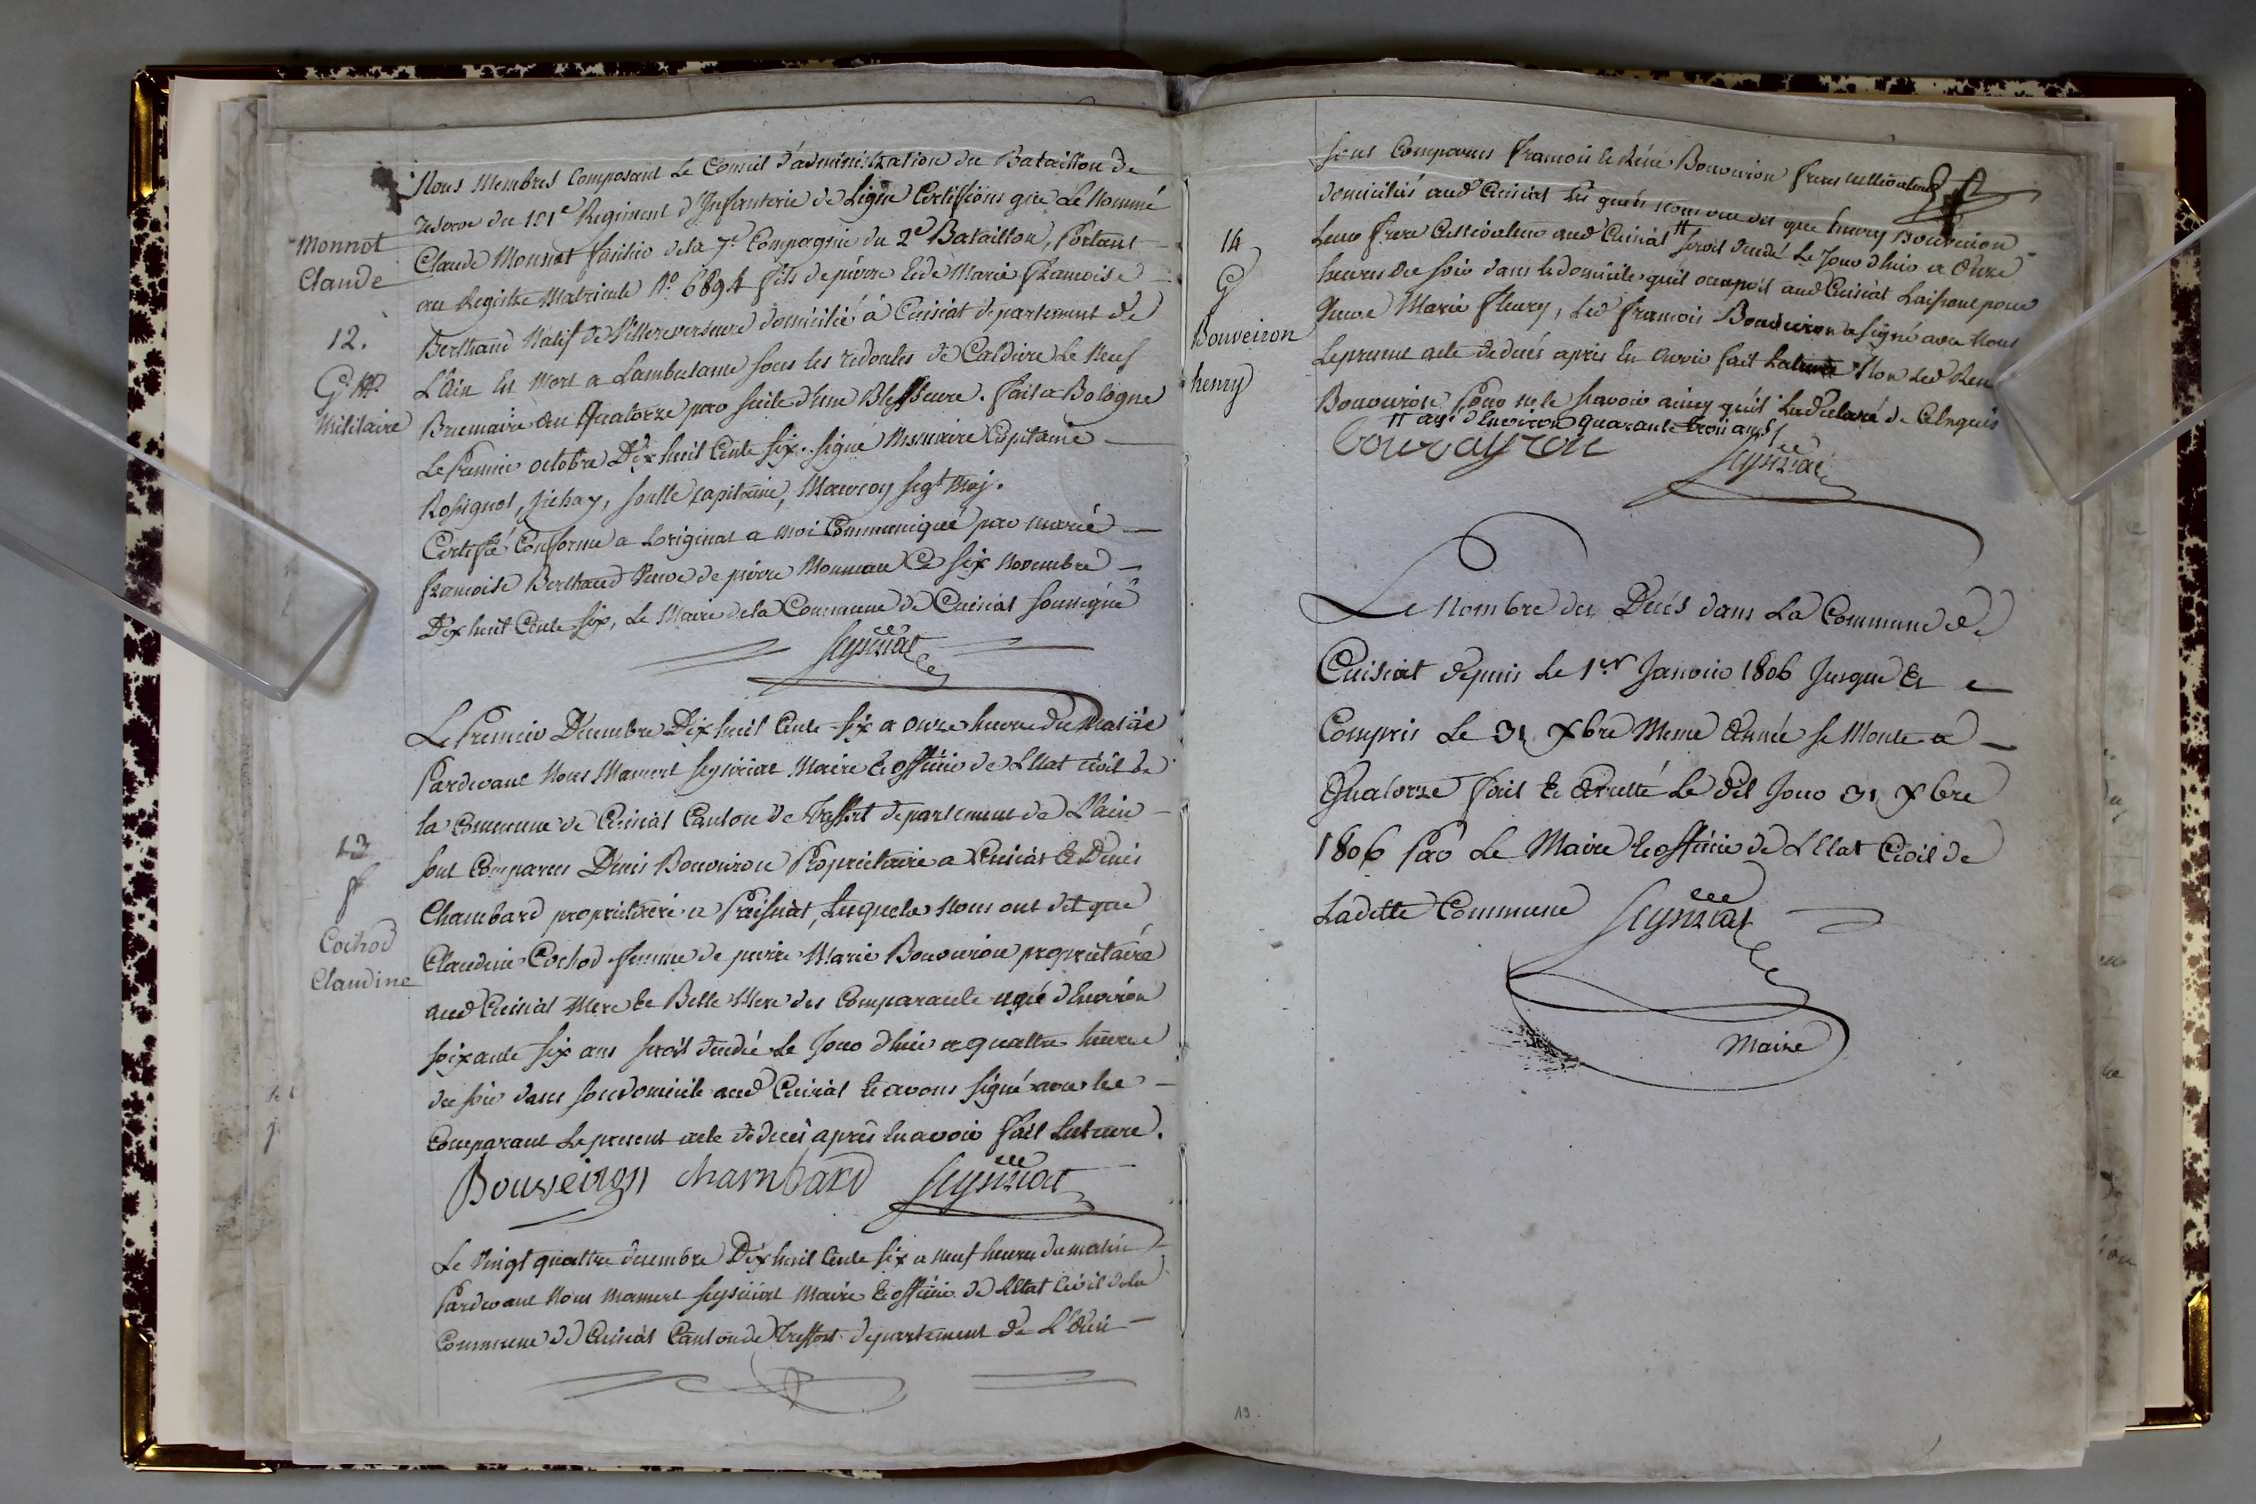 Nous Membres Composant Le Conseil d'administration du Bataillon de
reserve du 101e Regiment d'Infanterie de Ligne Certiffions que Le Nommé
Claude Monnet fusilier de la 7e Compagnie du 2e Bataillon, Portant
au Registre Matricule No. 6894 fils de pierre & de Marie Francoise
Berthaud Natif de Villereversure domicilié à Cuisiat departement de
L'Ain Est Mort a Lambulance sous les redoutes de Caldiere Le Neuf
Brumaire an Quatorze par suite d'une Blessure. fait a Bologne
Le Premier octobre Dix huit Cents Six. Signé Capitaine
Rossignol, soulle, capitaine, Mauroy sergt Maj.
Certifié Conforme a Loriginal a moi Communiqué par marie
francoise Berthaud Veuve de pierre Ce Six Novembre
Dix huit Cents Six, Le Maire de la Commune de Cuisiat soussigné
Monnot
Claude
12.
G.
Militaire
Le Premier Decembre Dix huit Cents Six a onze heures du Matin
Pardevant Nous Mamert Maire & officier de L'Etat civil de
la Commune de Cuisiat Canton de Treffort departement de L'ain
sont Comparus Denis Bouveiron Proprietaire a Cuisiat & Denis
Chambard proprietaire a Presiat, Lesquels Nous ont dit que
Claudine Cochod femme de pierre Marie Bouveiron proprietaire
aud Cuisiat Mere & Belle Mere des Comparants agé d'Environ
soixante six ans serait decedé Le Jour d'hier a quattre heures
du soir dans son domicile aud Cuisiat & avons signé avec les
Comparant Le present acte de deces apres En avoir fait Lecture.
13
f
Cochod
Claudine
Bouveiron Chambard
Le Vingt quattre decembre Dix huit Cents six a neuf heures du matin
Pardevant Nous Mamert Maire & officier de L'Etat Civil de la
Commune de Cuisiat Canton de Treffort departement de L'Ain
sont Comparus francois & Réné Bouveiron freres cultivateurs
domiciliés aud Cuisiat Les quels nous ont dit que henry Bouveiron
Leur frere Cultivateur aud Cuisiat # serait decedé Le Jour d'hier a Onze
heures du soir dans le domicile qu'il occupait aud Cuisiat Laissant pour
Veuve Marie fleury, Led francois Bouveiron a signé avec Nous
Le present acte de deces apres En avoir fait Lecture Non Led Rene
Bouveiron pour ne le scavoir ainsy qu'il La declaré de Ce Enquis
# agé d'Environ quarante trois ans
14
G
Bouveiron
henry
bouvayron
Le Nombre des Decés dans La Commune de
Cuisiat depuis Le 1er Janvier 1806 Jusque &
Compris Le 31 Xbre Meme Année se Monte a
Quatorze fait & Arretté Le dit Jour 31 Xbre
1806 Par Le Maire & officier de L'Etat Civil de
Laditte Commune
Maire
19.